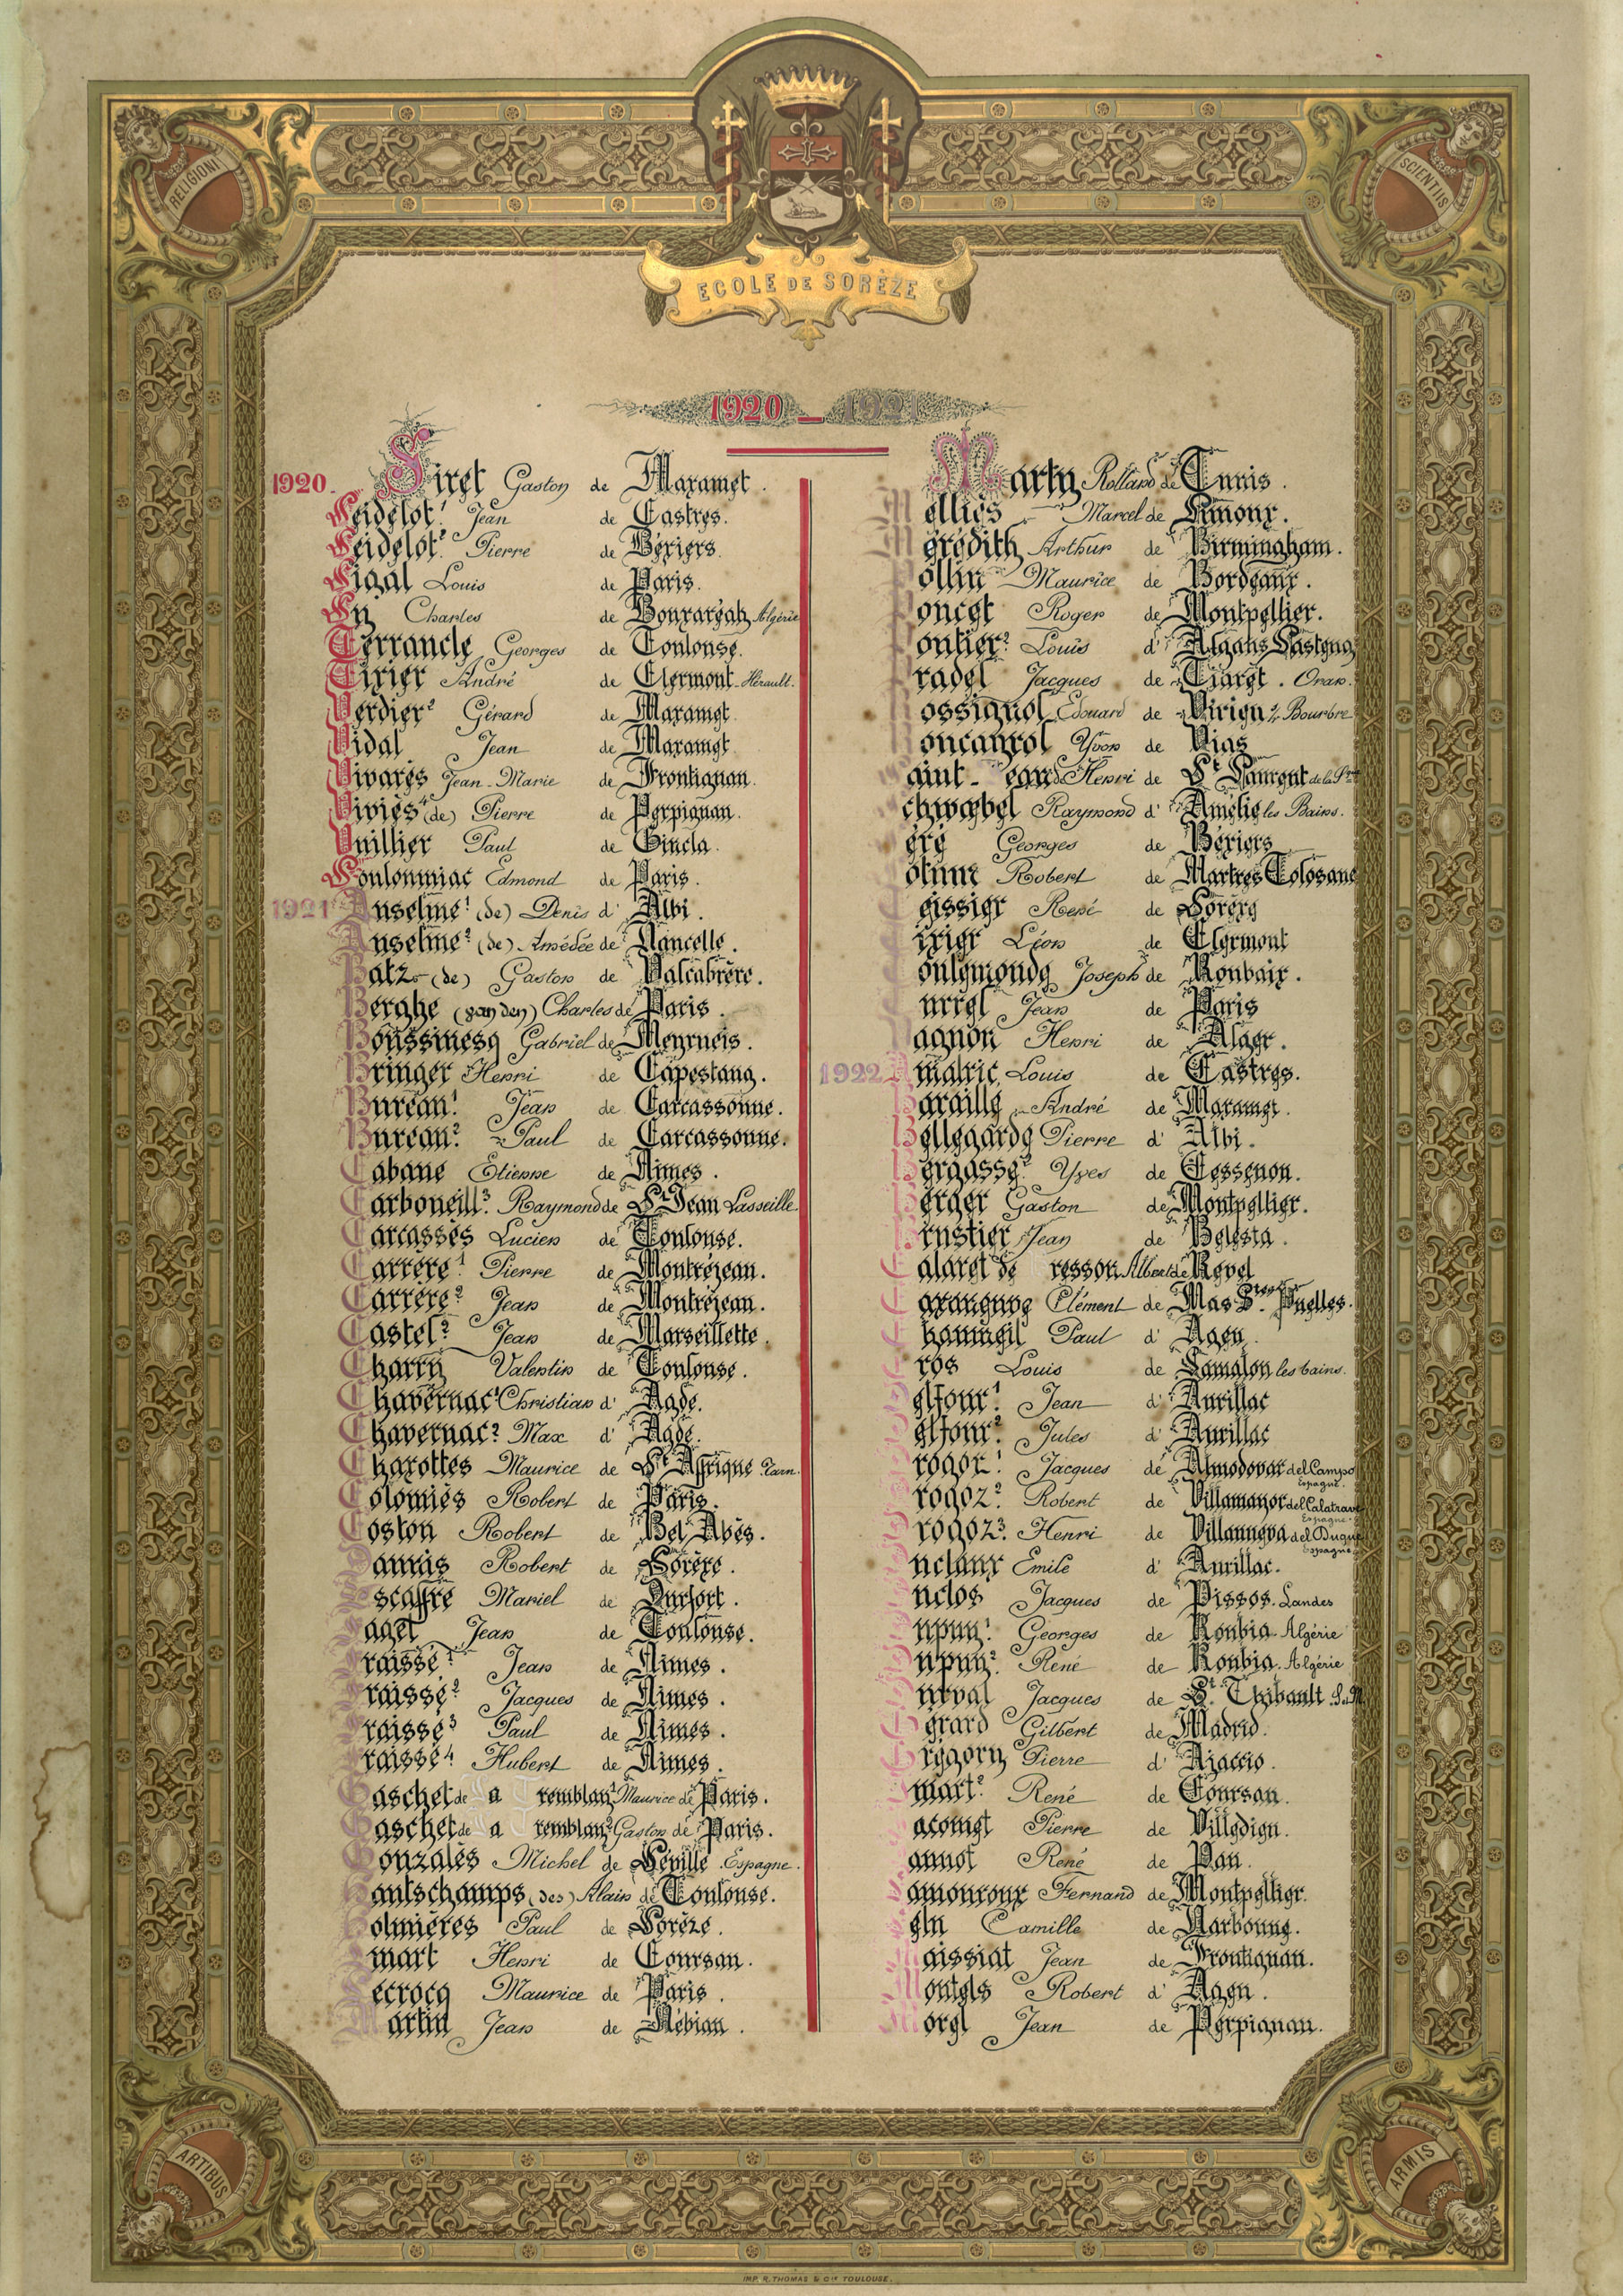 RELIGIONI
SCIENTIIS
ECOLE DE SORÈZE
1920 _ 1921
1920. Siret Gaston de Mazamet.
Seidelot¹ Jean de Castres.
Seidelot² Pierre de Béziers.
Sigal Louis de Paris.
Sy Charles de Bouzaréah Algérie
Terrancle Georges de Toulouse.
Tixier André de Clermont-Hérault.
Verdier² Gérard de Mazamet.
Vidal Jean de Mazamet.
Vivarès Jean-Marie de Frontignan.
Viviès⁴ (de) Pierre de Perpignan.
Vuillier Paul de Gincla.
Souloumiac Edmond de Paris.
1921 Anselme¹ (de) Denis d' Albi.
Anselme² (de) Amédée de Nancelle.
Batz (de) Gaston de Valcabrère.
Berghe (van den) Charles de Paris.
Boussinesq Gabriel de Meyrueis.
Bringer Henri de Capestang.
Bureau¹ Jean de Carcassonne.
Bureau² Paul de Carcassonne.
Cabane Etienne de Nimes.
Carboneill³ Raymond de St Jean Lasseille.
Carcassès Lucien de Toulouse.
Carrère¹ Pierre de Montréjeau.
Carrère² Jean de Montréjeau.
Castel² Jean de Marseillette.
Charry Valentin de Toulouse.
Chavernac¹ Christian d' Agde.
Chavernac² Max d' Agde.
Chazottes Maurice de St Affrique Tarn.
Colomiès Robert de Paris.
Coston Robert de Bel Abès.
aunis Robert de Sorèze.
scaffre Mariel de Durfort.
aget Jean de Toulouse.
raisse¹ Jean de Nimes.
raisse² Jacques de Nimes.
raisse³ Paul de Nimes.
raisse⁴ Hubert de Nimes.
Gaschet de La Tremblay¹ Maurice de Paris.
Gaschet de La Tremblay² Gaston de Paris.
Gonzalès Michel de Séville Espagne.
Hautschamps (des) Alain de Toulouse.
Houlmières Paul de Sorèze.
Imart Henri de Coursan.
Lecrocq Maurice de Paris.
Martin Jean de Nébian.
Marty Rolland de Tunis.
Melliès Marcel de Limoux.
Merédith Arthur de Birmingham.
Mollin Maurice de Bordeaux.
Poncet Roger de Montpellier.
Pontier² Louis d' Algans Lasteng
Pradel Jacques de Tiaret. Oran.
Rossignol Edouard de Virign s/ Bourbre
Roucayrol Yvon de Vias
Saint-Jean Henri de St Laurent de la
Schwœbel Raymond d' Amélie les Bains.
Séré Georges de Béziers
Robert de Martres Tolosane
Teissier René de Sorèze
Tixier Léon de Clermont
Toulemonde Joseph de Roubaix.
Jean de Paris
agnon Henri de Alger.
1922 Amalric Louis de Castres.
Baraille André de Mazamet.
Bellegarde Pierre d' Albi.
Bergasse² Yves de Cessenon.
Berger Gaston de Montpellier.
Brustier Jean de Bélesta.
Calaret de resson Albert de Revel
Caxangue Clément de Mas Stes Puelles.
Chaumeil Paul d' Agen.
Cros Louis de Lamalou les bains.
Delfour¹ Jean d' Aurillac
Delfour² Jules d' Aurillac
Drogoz¹ Jacques de Almodovar del Campo Espagne.
Drogoz² Robert de Villamayor del Calatrava Espagne.
Drogoz³ Henri de Villanueva del Duque Espagne.
Duclaux Emile d' Aurillac.
Duclos Jacques de Pissos. Landes
Dupuy¹ Georges de Roubia Algérie
Dupuy² René de Roubia. Algérie
Durval Jacques de St Thibault S.et M.
Gérard Gilbert de Madrid.
Grégory Pierre d' Ajaccio.
Imart² René de Coursan.
Jacomet Pierre de Villedieu.
Jannot René de Pau.
Lamouroux Fernand de Montpellier.
Camille de Narbonne.
Maissiat Jean de Frontignan.
Montels Robert d' Agen.
Morel Jean de Perpignan.
ARTIBUS
ARMIS
IMP. R. THOMAS & Cie TOULOUSE.